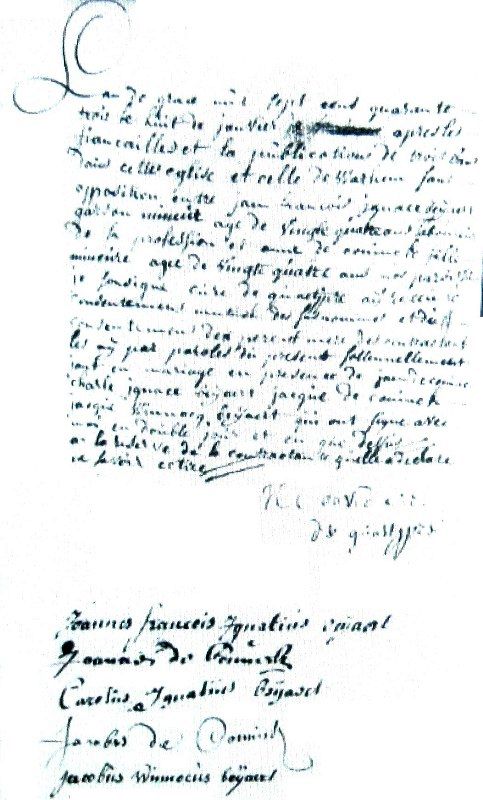 L'an de grace mil sept cent quarante
trois le huit de janvier apres les
fiancailles et la publications de trois bans
dans cette eglise et celle de Warhem sans
opposition entre jean francois ignace beÿaert
garson mineur age de vingt quatre ans laboureur
de sa profession et anne de coninck fille
mineure agee de vingt quatre ans mes paroissiens
je soussigné curé de quaetÿpre aÿ receu le
consentement mutuele des susnommes et du
consentement des pere et mere des contractant
les aÿ par paroles du present sollennellement
joint en mariage en presence de jean de coninck
charle ignace beÿaert jacque de coninck
jacque Winnocq beÿaert qui ont signe avec
moÿ en double jour et an que dessus
a la reserve de la contractante quelle a declaré
ne savoir ecrire
david curé
de quaetÿpre
Joannes francois Ignatius beÿaert
Joannes de Coninck
Carolus Ignatius beÿaert
Jacobus de Coninck
Jacobus winnocus beÿaert